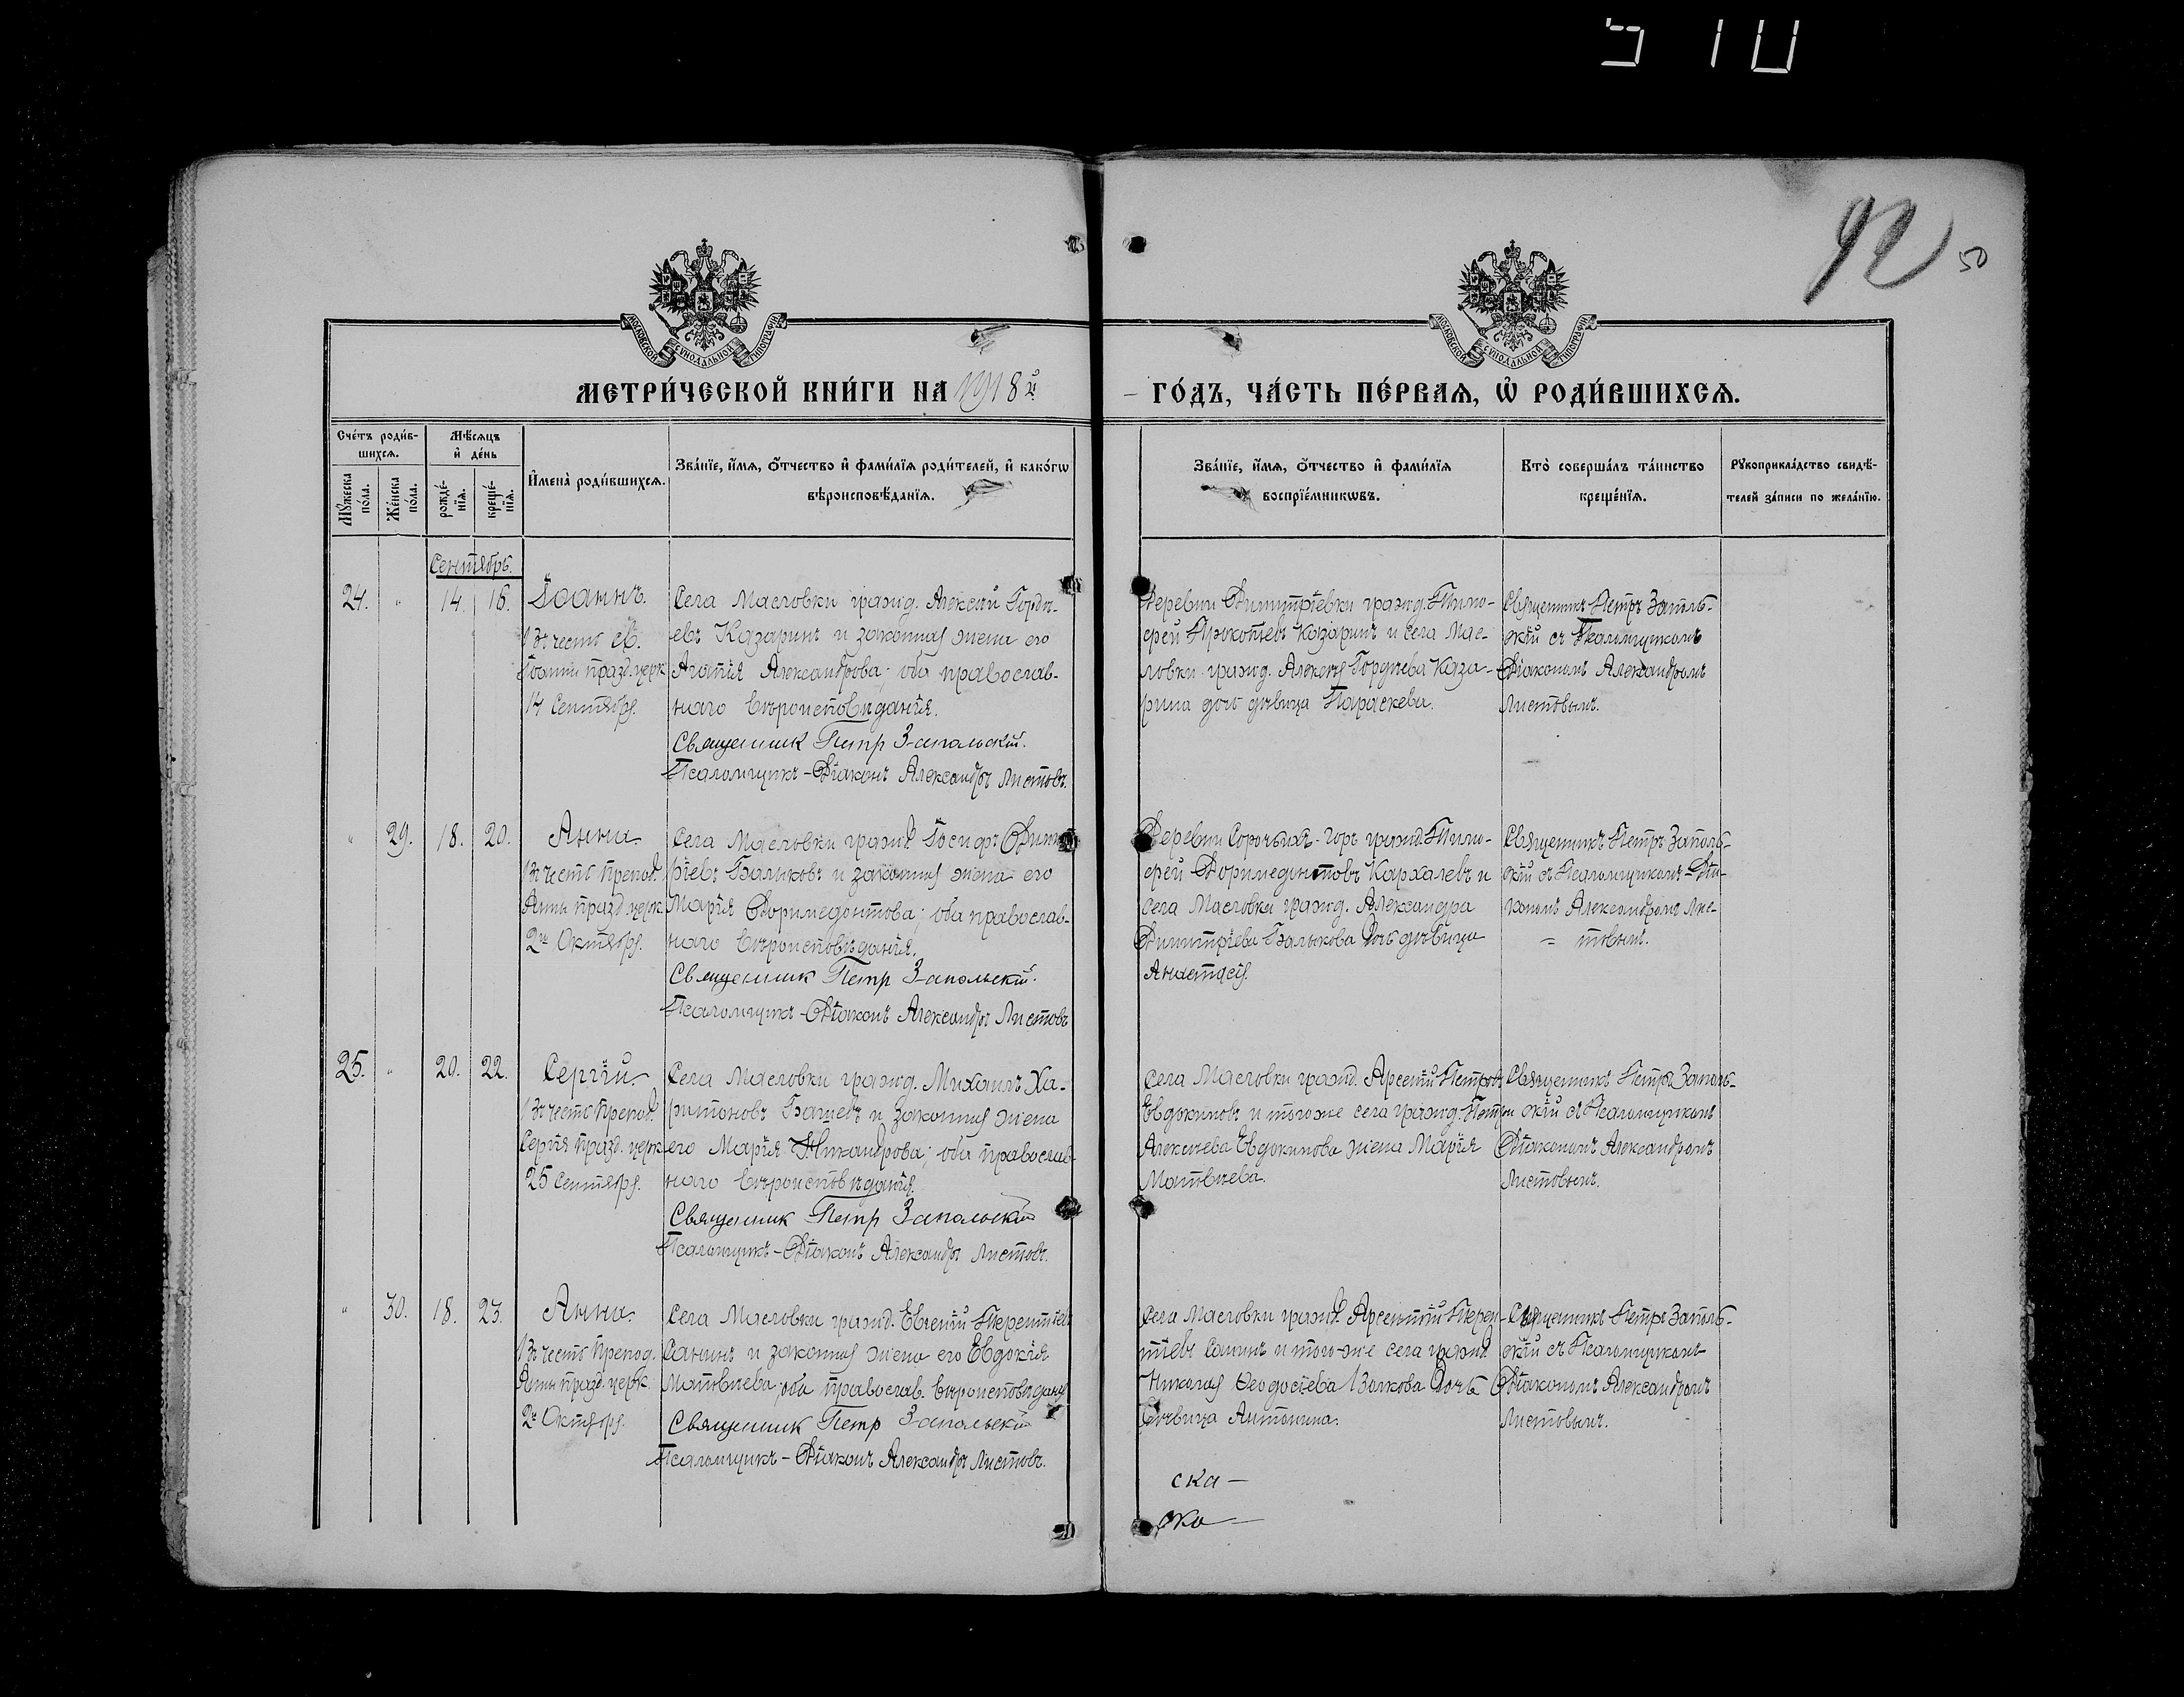 510
92
50
МОСКОВСКОЙ СѴНОДАЛЬНОЙ ТИПОГРАФІИ
МОСКОВСКОЙ СѴНОДАЛЬНОЙ ТИПОГРАФІИ
МЕТРИ́ЧЕСКОЙ КНИ́ГИ НА 1918 й
ГО́ДЪ, ЧА́СТЬ ПЕ́РВАЯ, Ѡ РОДИ́ВШИХСЯ.
Сче́тъ роди́в-
шихся.
Мꙋ́жеска по́ла.
Же́нска по́ла.
Мѣ́сяцъ
и҆ де́нь
рожде́-
нїя.
креще́-
нїя.
И҆мена̀ роди́вшихся.
Зва́нїе, и҆́мя, ѻ҆́тчество и҆ фами́лїя роди́телей, и҆ како́гѡ
вѣроисповѣ́данїя.
Зва́нїе, и҆́мя, ѻ҆́тчество и҆ фами́лїя
воспрїе́мникѡвъ.
Кто̀ соверша́лъ та́инство
креще́нїя.
Рꙋкоприкла́дство свидѣ́-
телей за́писи по жела́нїю.
Сентябрь.
24. " 14. 16.
Іоаннъ.
Въ честь св.
Іоанна празд. церк.
14 Сентября.
Села Масловки гражд. Алексѣй Гордѣ-
евъ Казаринъ и законная жена его
Агапія Александрова; оба православ-
наго вѣроисповѣданія.
Священник Петр Запольскій.
Псаломщикъ-Діаконъ Александръ Листовъ.
Деревни Димитріевки гражд. Тимо-
фей Прокопьевъ Казаринъ и села Мас-
ловки гражд. Алексѣя Гордѣева Каза-
рина дочь дѣвица Параскева.
Священникъ Петръ Заполь-
скій съ Псаломщикомъ
Діакономъ Александромъ
Листовымъ.
" 29. 18. 20.
Анна.
Въ честь Препод.
Анны празд. церк.
2го Октября.
Села Масловки гражд. Іосифъ Димит
ріевъ Балыковъ и законная жена его
Марія Доримедонтова; оба православ-
наго вѣроисповѣданія.
Священник Петр Запольскій.
Псаломщикъ-Діаконъ Александръ Листовъ
Деревни Сорочьихъ-Горъ гражд. Тимо-
фей Доримедонтовъ Кархалевъ и
села Масловки гражд. Александра
Димитріева Балыкова дочь дѣвица
Анастасія.
Священникъ Петръ Заполь-
скій съ Псаломщикомъ-Діа-
кономъ Александромъ Лис-
= товымъ.
25. " 20. 22.
Сергій.
Въ честь Препод.
Сергія празд. церк.
25 Сентября.
Села Масловки гражд. Михаилъ Ха-
ритоновъ Башевъ и законная жена
его Марія Никандрова; оба православ-
наго вѣроисповѣданія.
Священник Петр Запольскій
Псаломщикъ-Діаконъ Александръ Листовъ.
Села Масловки гражд. Арсеній Петровъ
Евдокимовъ и того же села гражд. Петра
Алексѣева Евдокимова жена Марія
Матвѣева.
Священникъ Петръ Заполь-
скій съ Псаломщикомъ
Діакономъ Александромъ
Листовымъ.
" 30. 18. 23.
Анна.
Въ честь Препод.
Анны празд. церк.
2го Октября.
Села Масловки гражд. Евгеній Терентьевъ
Санинъ и законная жена его Евдокія
Матвѣева; оба православ. вѣроисповѣданія
Священник Петр Запольскій
Псаломщикъ-Діаконъ Александръ Листовъ.
Села Масловки гражд. Арсентій Терен-
тіевъ Санинъ и того-же села гражд.
Николая Ѳеодосіева Волкова дочь
Дѣвица Антонина.
Священникъ Петръ Заполь-
скій съ Псаломщикомъ
Діакономъ Александромъ
Листовымъ.
ска-